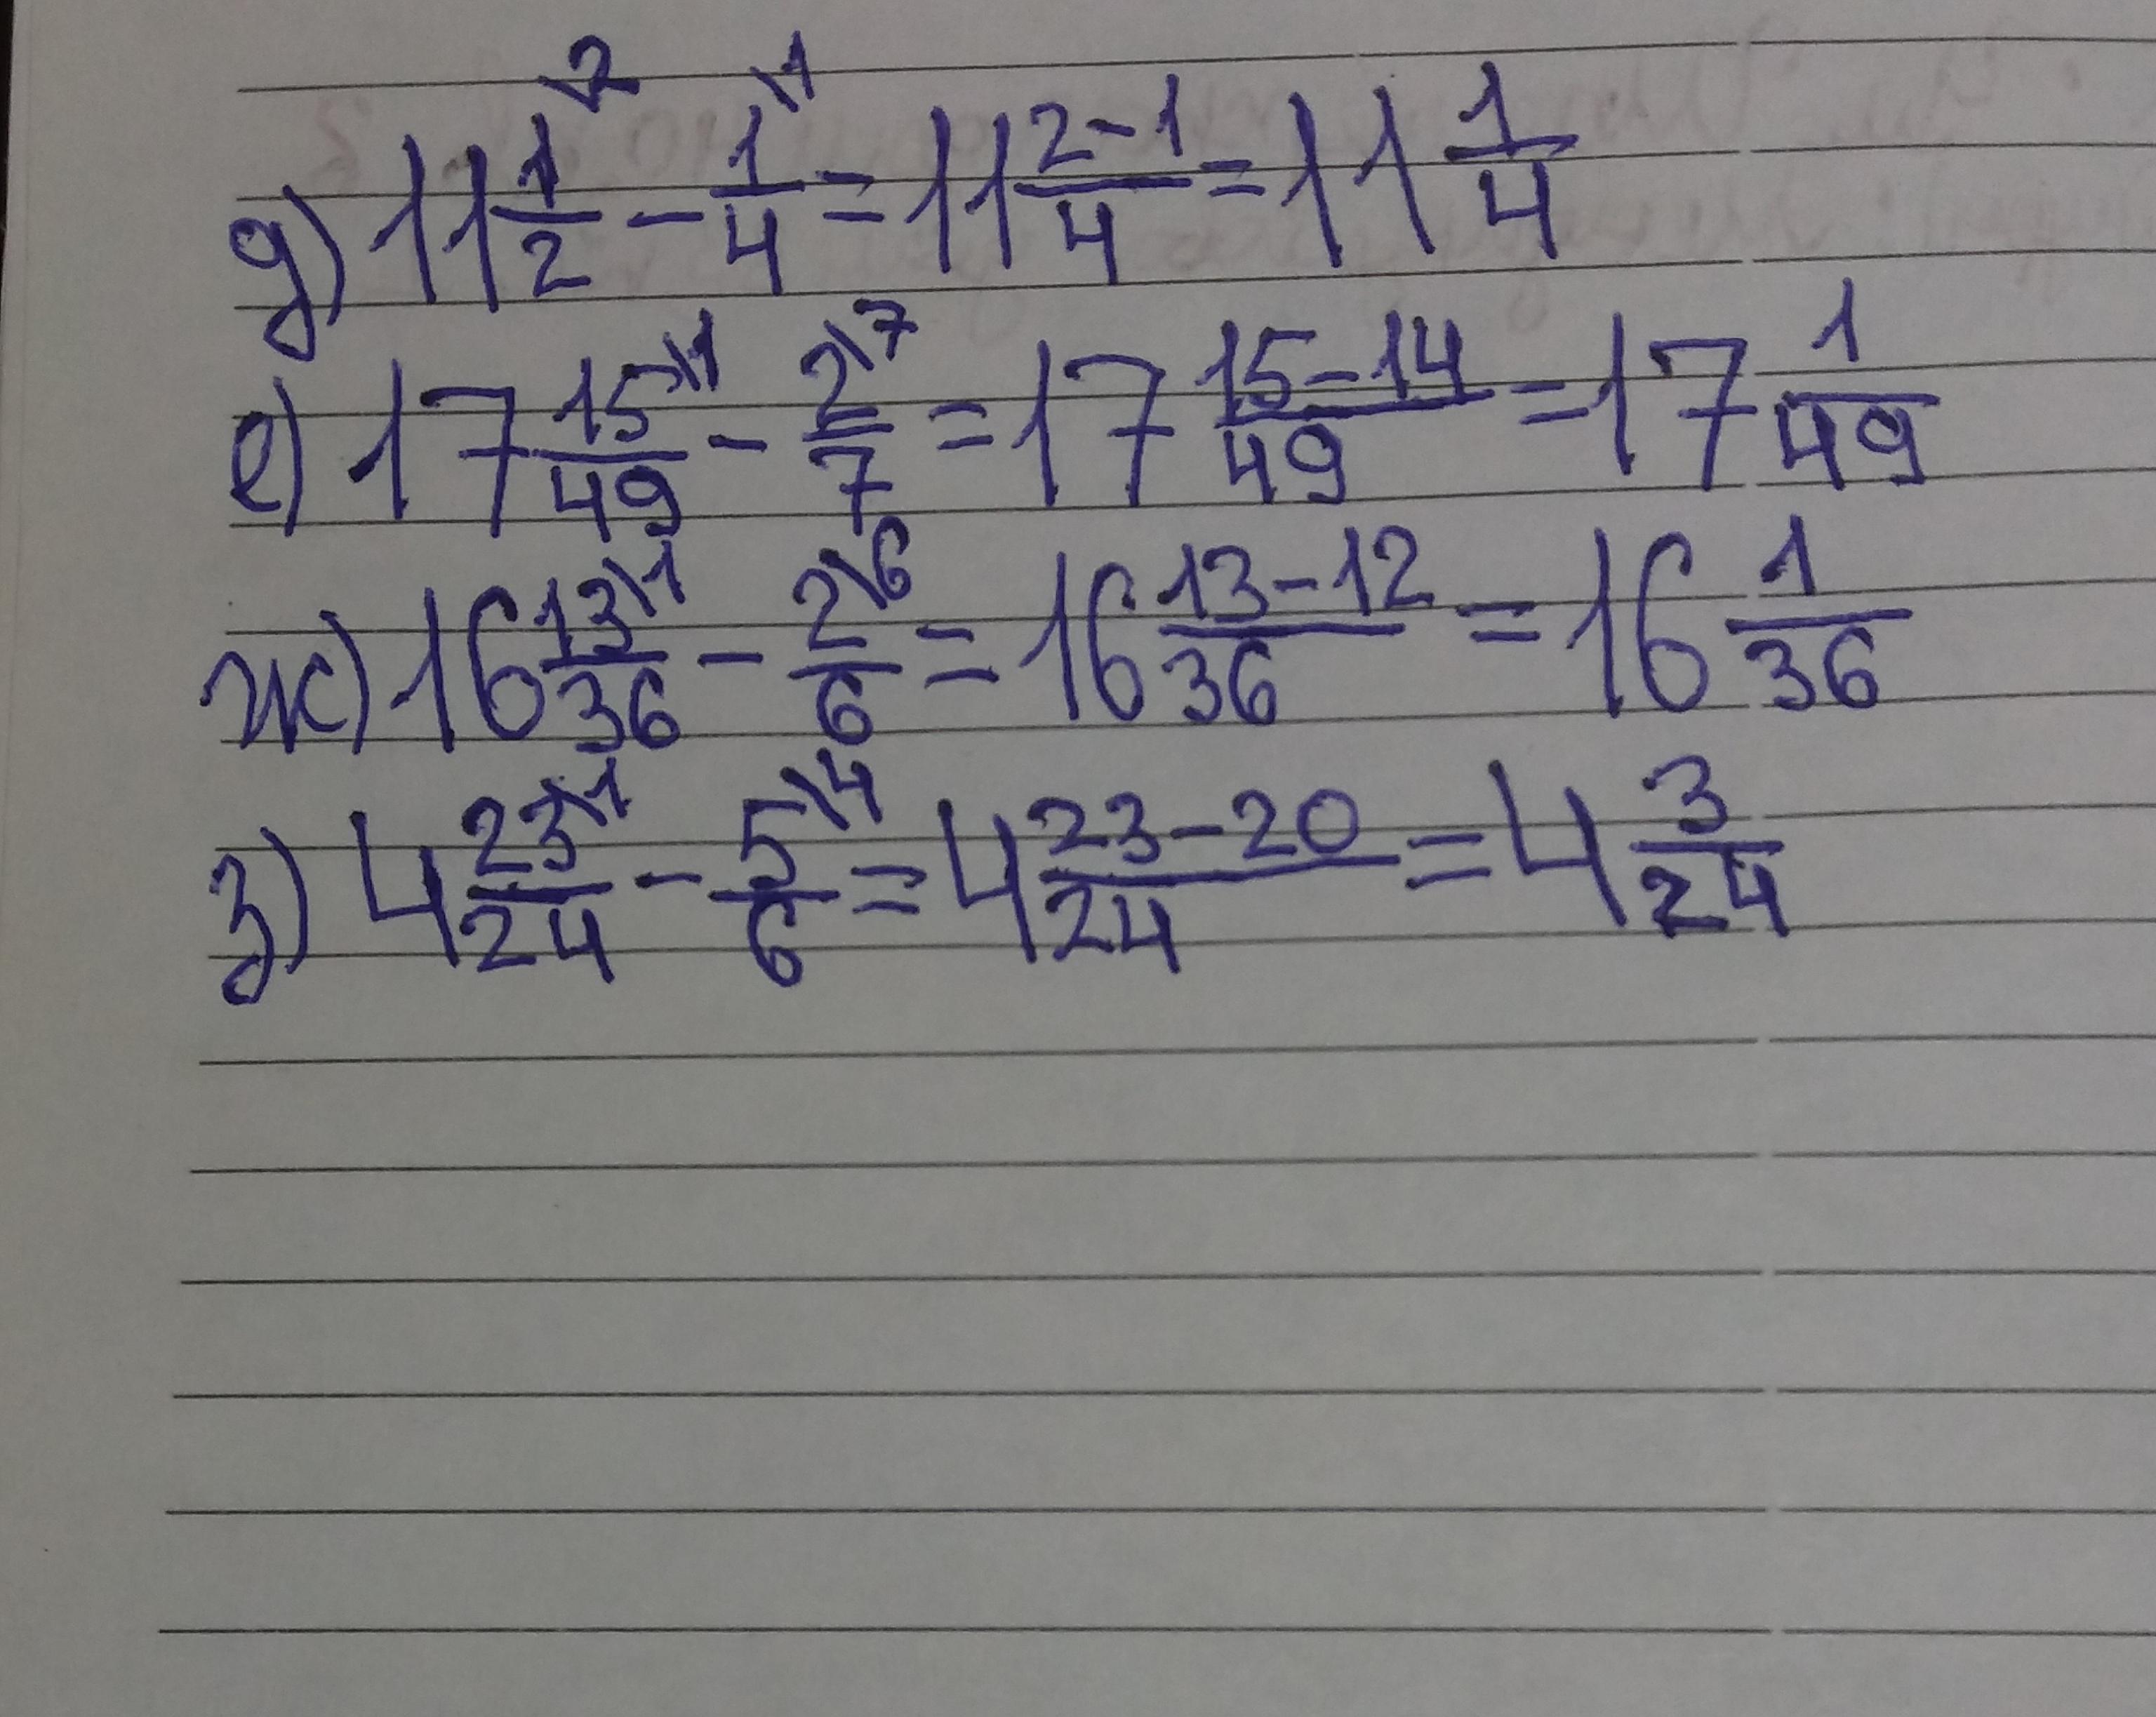 д) 11 1\2/2 - 1\1/4 = 11 2-1/4 = 11 1/4
е) 17 15\1/49 - 2\7/7 = 17 15-14/49 = 17 1/49
ж) 16 13\1/36 - 2\6/6 = 16 13-12/36 = 16 1/36
з) 4 23\1/24 - 5\4/6 = 4 23-20/24 = 4 3/24